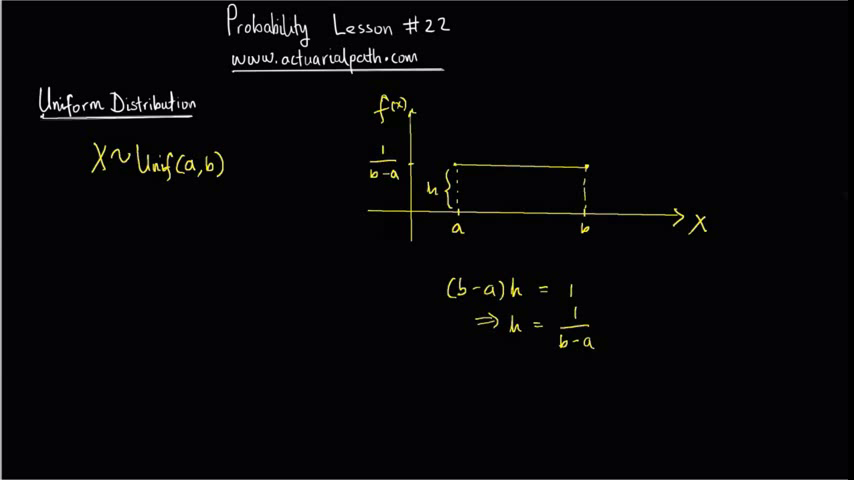 Probability Lesson #22
www.actuarialpath.com
Uniform Distribution
X~Unif(a,b)
f(x)
1
b-a
h
a
b
X
(b-a)h = 1
⇒ h = 1
b-a